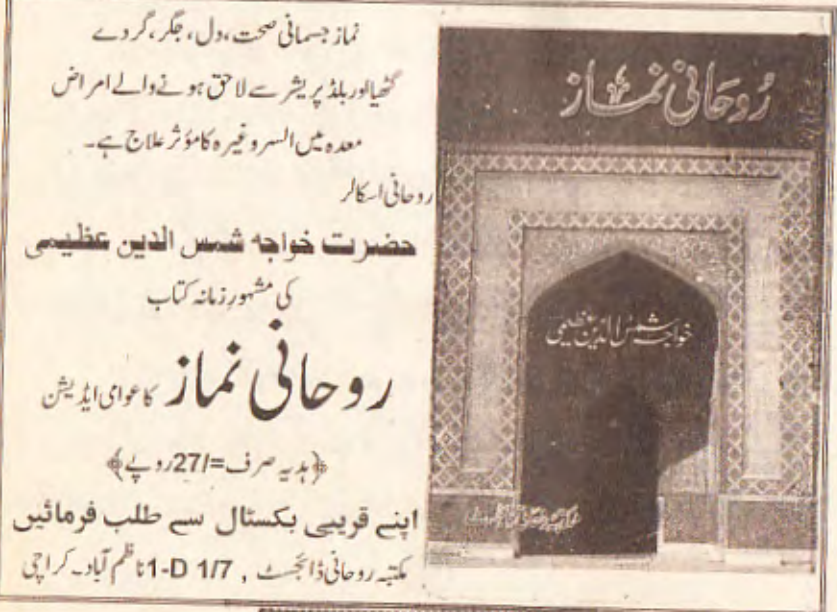 نماز جسمانی صحت، دل، جگر، گردے
گٹھیا اور بلڈ پریشر سے لاحق ہونے والے امراض
معدہ میں السر وغیرہ کا مؤثر علاج ہے۔
روحانی اسکالر
حضرت خواجہ شمس الدین عظیمی
کی مشہورِ زمانہ کتاب
روحانی نماز کا عوامی ایڈیشن
﴿ہدیہ صرف =/27 روپے﴾
اپنے قریبی بکسٹال سے طلب فرمائیں
مکتبہ روحانی ڈائجسٹ , 1-D 1/7 ناظم آباد۔ کراچی
رُوحَانی نماز
خواجہ شمس الدین عظیمی